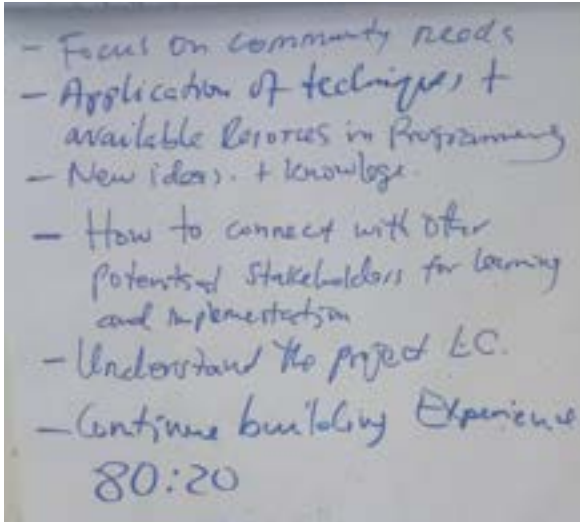 - Focus on community needs
- Application of techniques +
available Resorces in Programming
- New ideas. + knowloge.
- How to connect with other
potential stakeholders for learning
and implementation
- Understand the project LC.
- Continue building Experience
80:20